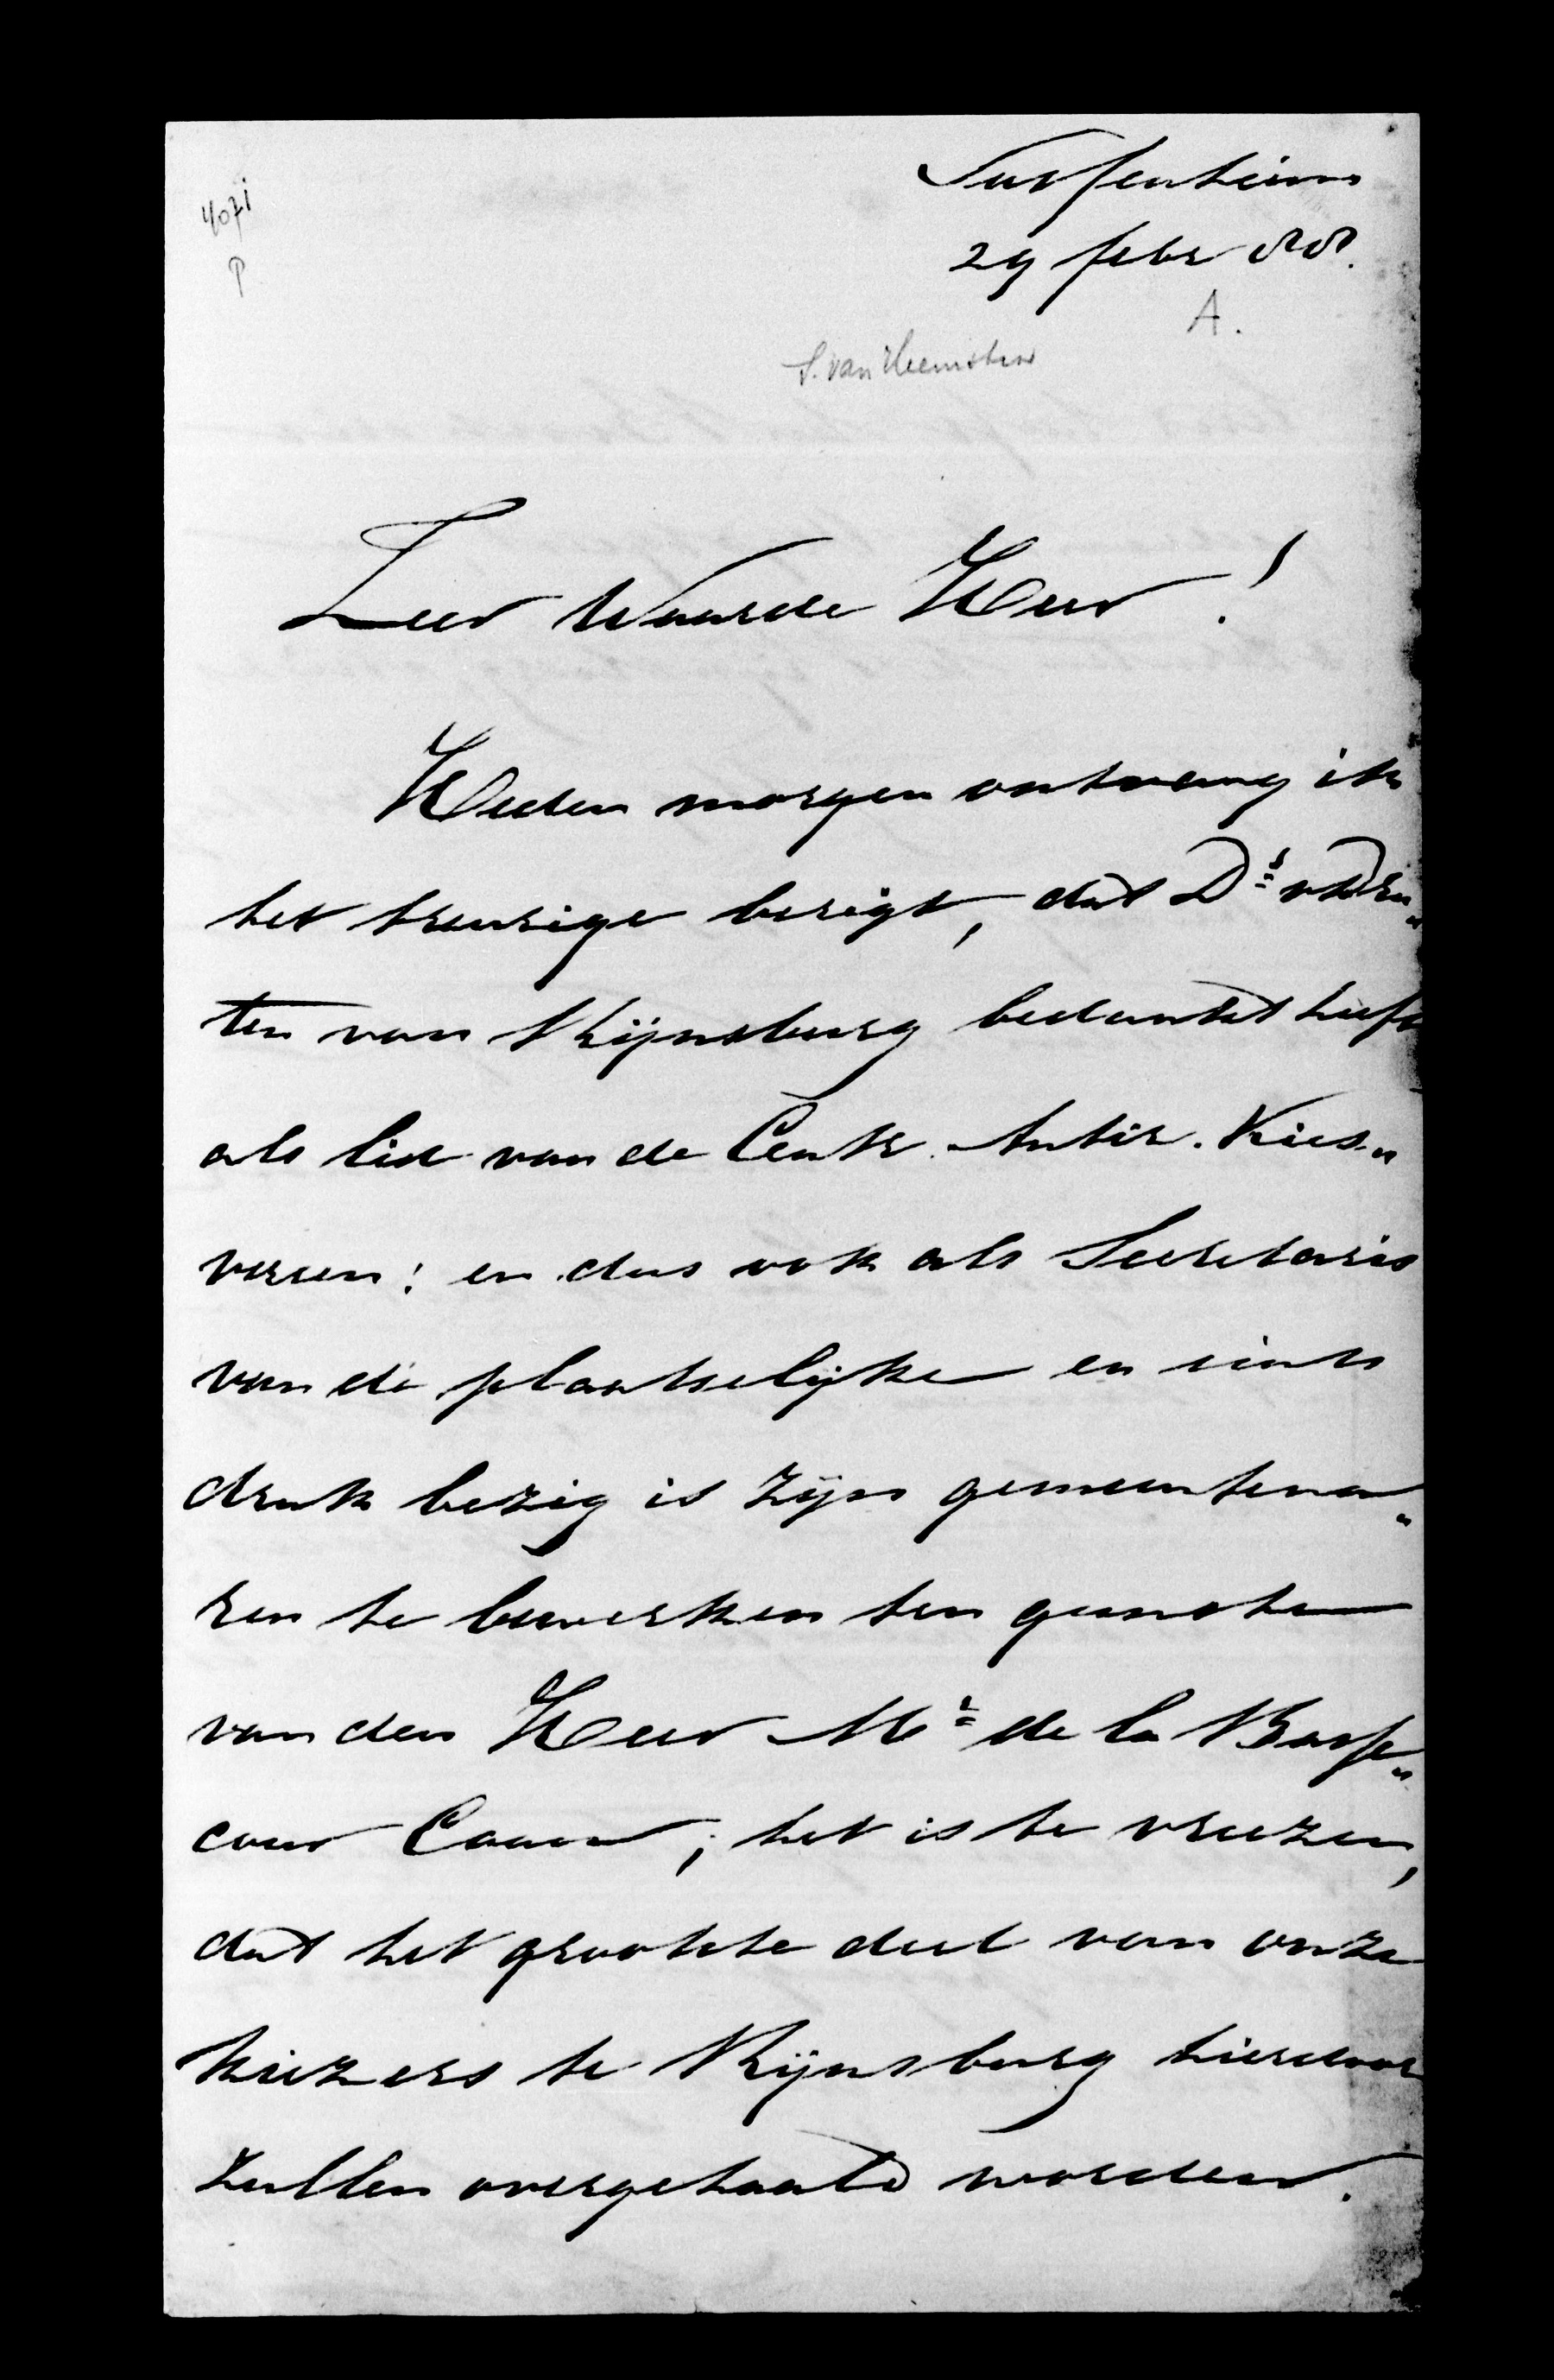 4071
P
Sassenheim
29 febr 88.
A.
S. van Heemstra
Zeer Waarde Heer!
Heden morgen ontvang ik
het treurige berigt, dat Ds
ten van Rijnsburg bedankt heeft
als lid van de Centr. Antir. Kies„
vereen: en dus ook als Secretaris
van de plaatselijke en sinds
druk bezig is zijn gemeentena„
ren te bewerken ten gunste
van den Heer Mr de la Basse„
cour Caan; het is te vreezen,
dat het grootste deel van onze
kiezers te Rijnsburg hierdoor
zullen overgehaald worden.